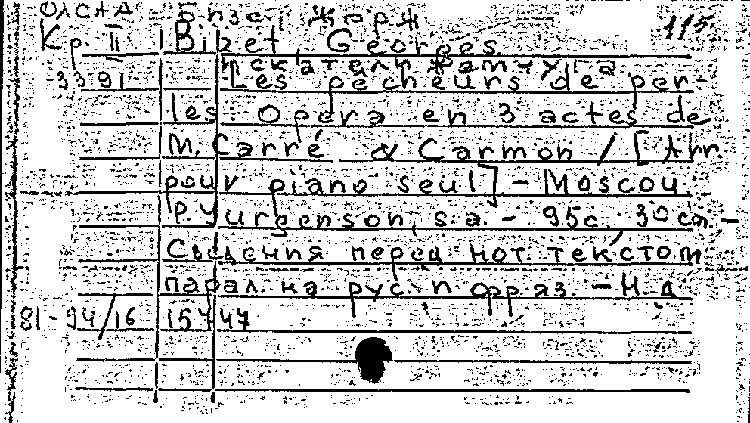 Бизе, Жорж 115
Кр. II Bizet, Georges
Искатели жемчуга
3391 Les pêcheurs de per-
les. Opéra en 3 actes de
M. Carré & Carmon / [Arr.
pour piano seul] - Moscou:
P. Yurgenson, s.a. - 95c.; 30 см. -
Сведения перед нот. текстом
парал. на рус. и фр. яз. - Н. д.
81-94/16 15747